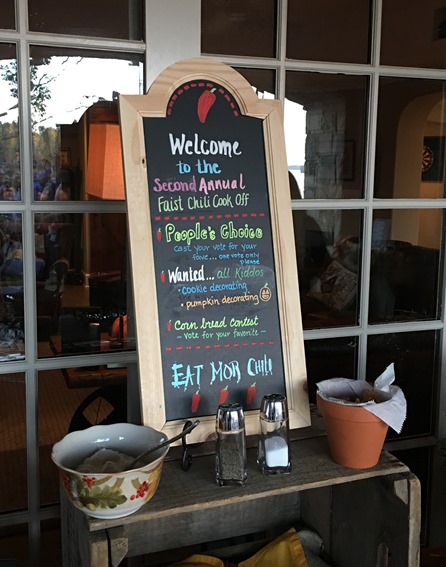 Welcome
to the
Second Annual
Faist Chili Cook Off
People's Choice
cast your vote for your
fave... one vote only
please
Wanted... all Kiddos
• cookie decorating
• pumpkin decorating
Corn bread contest
- vote for your favorite -
EAT MOR CHILI